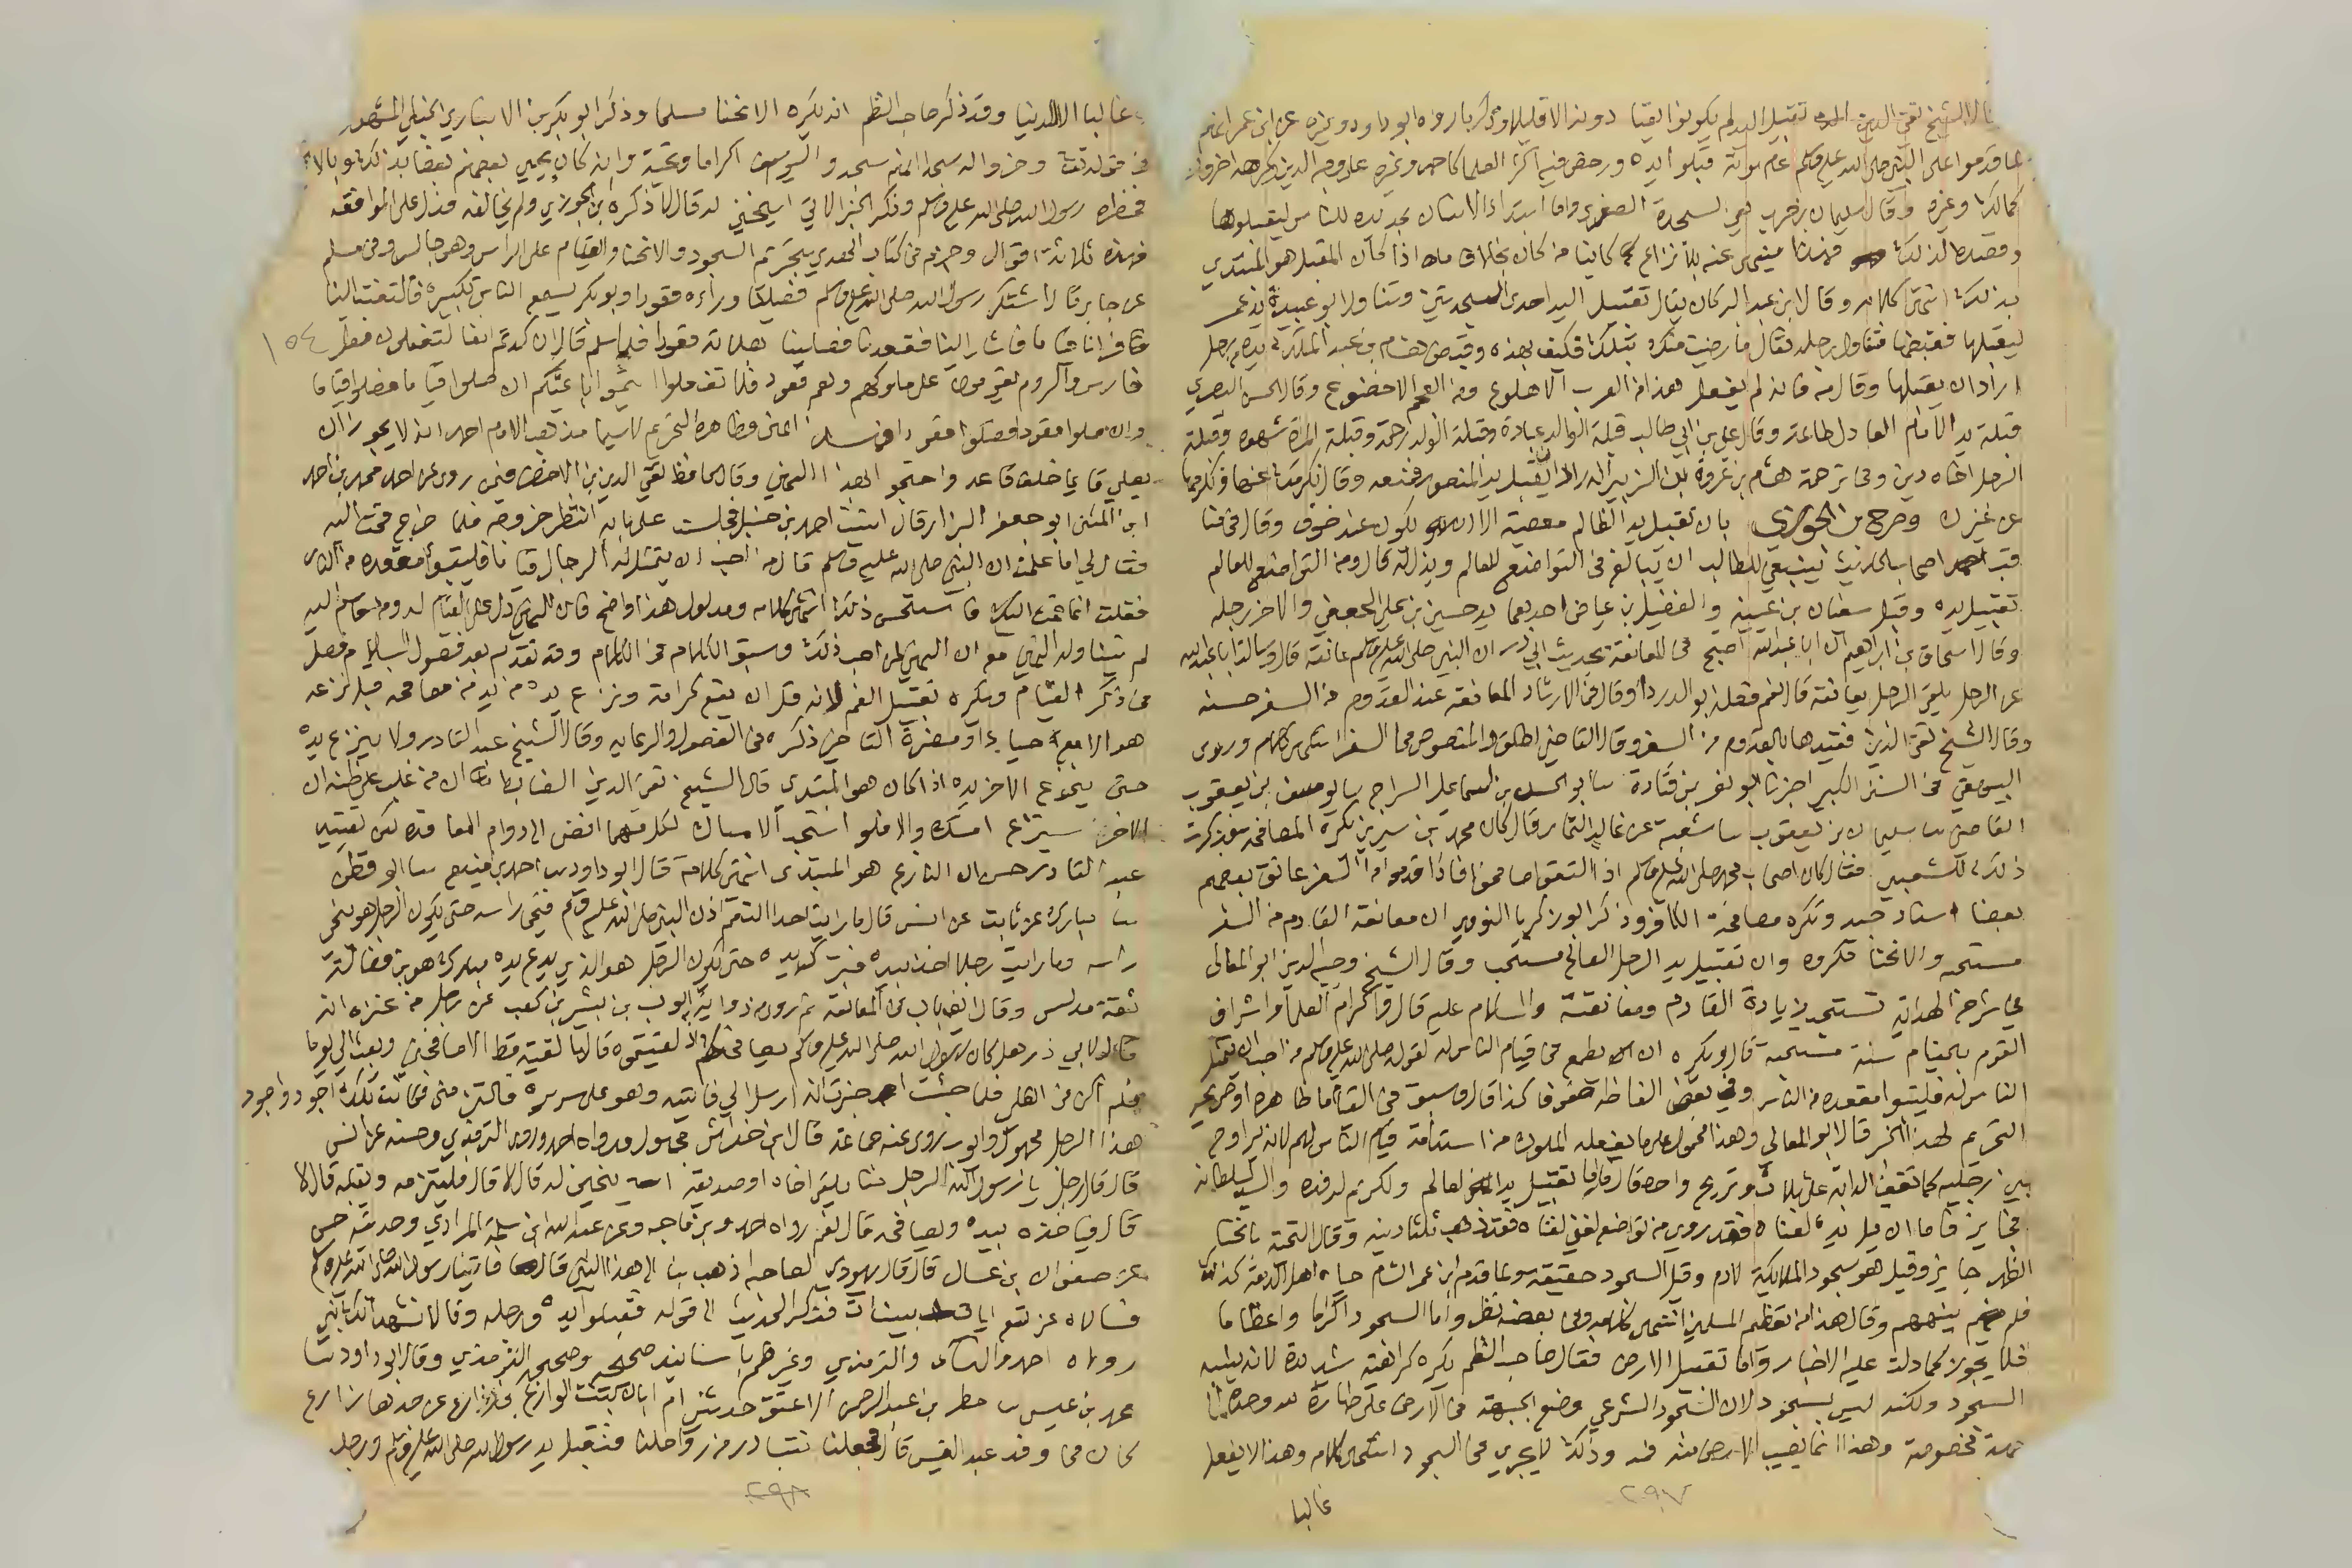 قال الشيخ تقي الدين تقبيل اليد لم يكونوا يعتادونه الا قليلا وذكر ما رواه ابو داود وغيره عن ابن عمر انهم
لما قدموا على النبي صلى الله عليه وسلم عام موتة قبلوا يده ورخص فيه اكثر العلما كاحمد وغيره على وجه الدين وكرهه اخرون
كمالك وغيره وقال سليمان بن حرب هي السجدة الصغرى واما ابتداء الانسان بمد يده للناس ليقبلوها
وقصده لذلك فهذا ينهى عنه بلا نزاع كائنا من كان بخلاف ما اذا كان المقبل هو المبتدي
بذلك انتهى كلامه وقال ابن عبد البر كان يقال تقبيل اليد احدى السجدتين وتناول ابو عبيدة يد عمر
ليقبلها فقبضها فتناول رجله فقال ما رضيت منك بتلك فكيف بهذه وقبض هشام بن عبد الملك يده من رجل
اراد ان يقبلها وقال مه فانه لم يفعل هذا من العرب الا هلوع ومن العجم الا خضوع وقال الحسن البصري
قبلة يد الامام العادل طاعة وقال علي بن ابي طالب قبلة الوالد عبادة وقبلة الولد رحمة وقبلة المراة شهوة وقبلة
الرجل اخاه دين وفي ترجمة هشام بن عروة بن الزبير انه اراد ان يقبل يد المنصور فمنعه وقال نكرمك عنها ونكرمها
عن غيرك وصرح ابن الجوزي بان تقبيل يد الظالم معصية الا ان يكون عند خوف وقال في مناقب
اصحاب الحديث ينبغي للطالب ان يبالغ في التواضع للعالم ويذل له قال ومن التواضع للعالم
تقبيل يده وقبل سفيان بن عيينه والفضيل بن عياض احدهما يد حسين بن علي الجعفي والاخر رجله
وقال اسحاق بن ابراهيم ان ابا عبد الله احتج في المعانقة بحديث ابي ذر ان النبي صلى الله عليه وسلم عانقه قال وسالت ابا عبد الله
عن الرجل يلقى الرجل يعانقه قال نعم فعله ابو الدرداء وقال في الارشاد المعانقة عند القدوم من السفر حسنة
وقال الشيخ تقي الدين فقيدها بالقدوم من السفر وقال القاضي اطلق والمنصوص في السفر انتهى كلامه وروى
البيهقي في السنن الكبير اخبرنا ابو نصر بن قتادة سا ابو الحسن بن اسماعيل السراج سا يوسف بن يعقوب
القاضي سا سليمان بن يعقوب سا شعبة عن غالب التمار قال كان محمد بن سيرين يكره المصافحة فذكرت
ذلك للشعبي فقال كان اصحاب محمد صلى الله عليه وسلم اذا التقوا صافحوا فاذا قدموا من السفر عانق بعضهم
بعضا اسناد جيد وتكره مصافحة الكافر وذكر ابو زكريا النووي ان معانقة القادم من السفر
مستحبه والانحنا مكروه وان تقبيل يد الرجل الصالح مستحب وقال الشيخ وجيه الدين ابو المعالي
في شرح الهداية تستحب زيادة القادم ومعانقته والسلام عليه قال واكرام العلما واشراف
القوم بالقيام سنة مستحبة قال ويكره ان يطمع في قيام الناس له لقوله صلى الله عليه وسلم من احب ان يتمثل
الناس له فليتبوا مقعده من النار وفي بعض الفاظه صفوفا كذا قال وسبق في القيام ما ظاهره او صريحه
التحريم لهذا الخبر قال ابو المعالي وهذا محمول على ما يفعله الملوك من استدامة قيام الناس لهم لانه يراوح
بين رجليه كما تقف الدابة على ثلاث وتريح واحدة قال فاما تقبيل يد العالم والكريم لرفده والسيد لسلطانه
فجايز فاما ان قبل يده لغناه فقد روي من تواضع لغني لغناه فقد ذهب ثلثا دينه وقال التحية بانحنا
الظهر جايز وقيل هو سجود الملايكة لادم وقيل السجود حقيقة ولما قدم ابن عمر الشام حياه اهل الذمة كذلك
فلم ينههم وقال هذا من تعظيم المسلمين انتهى كلامه وفي بعضه نظر واما السجود اكراما واعظاما
فلا يجوز كما دلت عليه الاخبار واما تقبيل الارض فقال صاحب النظم يكره كراهية شديدة لانه يشبه
السجود ولكنه ليس بسجود لان السجود الشرعي وضع الجبهة في الارض على طهارة لله وحده الى
جهة مخصوصة وهذا انما يصيب الارض منه فمه وذلك لا يجزي في السجود انتهى كلامه وهذا لا يفعل
غالبا
٢٩٧
غالبا الا للدنيا وقد ذكر صاحب النظم انه يكره الانحنا مسلما وذكر ابو بكر بن الانباري الحنبلي المشهور
في قوله تعالى وخروا له سجدا انهم سجدوا ليوسف اكراما وتحية وانه كان يحيي بعضهم بعضا بذلك وبالانحنا
فحظره رسول الله صلى الله عليه وسلم وذكر الخبر الاتي اينحني له قال لا ذكره ابن الجوزي ولم يخالفه فدل على الموافقه
فهذه ثلاثة اقوال وجزم في كتاب الهدي بتحريم السجود والانحنا والقيام على الراس وهو جالس وفي مسلم
عن جابر قال اشتكى رسول الله صلى الله عليه وسلم فصلينا وراءه وهو قاعد وابو بكر يسمع الناس تكبيره فالتفت الينا
فرآنا قياما فاشار الينا فقعدنا فصلينا بصلاته قعودا فلما سلم قال ان كدتم انفا لتفعلون فعل
١٥٤
فارس والروم يقومون على ملوكهم وهم قعود فلا تفعلوا ايتموا بايمتكم ان صلوا قياما فصلوا قياما
وان صلوا قعودا فصلوا قعودا النهي فظاهره التحريم لا سيما مذهب الامام احمد انه لا يجوز ان
يصلي قايما خلف قاعد واحتجوا بهذا النهي وقال الحافظ تقي الدين بن الاخضر فيمن روى عن احمد محمد بن احمد
ابن المثنى ابو جعفر البزار قال اتيت احمد بن حنبل فجلست على بابه انتظر خروجه فلما خرج قمت اليه
فقال لي اما علمت ان النبي صلى الله عليه وسلم قال من احب ان يتمثل له الرجال قياما فليتبوأ مقعده من النار
فقلت انما قمت اليك فاستحسن ذلك انتهى كلامه ومدلول هذا واضح فان النهي دل على القيام له ومن قام اليه
لم يتناوله النهي مع ان النهي لمن احب ذلك وسبق الكلام في الكلام وقد تقدم بعد فصول السلام فصل
في ذكر القيام ويكره تقبيل الفم لانه قل ان يقع كرامة ونزع يده من يد من صافحه قبل نزعه
هو الا مع حياء او مضرة التاخير ذكره في الفصول والرعايه وقال الشيخ عبد القادر ولا ينزع يده
حتى ينزع الاخر يده اذا كان هو المبتدي قال الشيخ تقي الدين الضابط ان من غلب على ظنه ان
الاخر سينزع امسك والا فلو استحب الامساك لكل منهما افضى الى دوام المعاقدة لكن تقييد
عبد القادر حسن ان النازع هو المبتدي انتهى كلامه قال ابو داود سا احمد بن منيع سا ابو قطن
سا مبارك عن ثابت عن انس قال ما رايت احدا التقم اذن النبي صلى الله عليه وسلم فنحى راسه حتى يكون الرجل هو ينحي
راسه وما رايت رجلا اخذ بيده فترك يده حتى يكون الرجل هو الذي يدع يده مبارك هو بن فضالة
ثقة مدلس وقال ايضا باب في المعانقة ثم روى من رواية ايوب بن بشير بن كعب عن رجل من عنزه انه
قال لابي ذر هل كان رسول الله صلى الله عليه وسلم يصافحكم اذا لقيتموه قال ما لقيته قط الا صافحني وبعث الي يوما
فلم اكن في اهلي فلما جئت اخبرت انه ارسل الي فاتيته وهو على سريره فالتزمني فكانت تلك اجود واجود
هذا الرجل مجهول وايوب روى عنه جماعة قال ابن خراش مجهول ورواه احمد وروى الترمذي وحسنه عن انس
قال قال رجل يا رسول الله الرجل منا يلقى اخاه او صديقه اينحني له قال لا قال فيلتزمه ويقبله قال لا
قال فياخذه بيده ويصافحه قال نعم رواه احمد وبن ماجه وعن عبد الله ابن سلمة المرادي وحديثه حسن
عن صفوان بن عسال قال قال يهودي لصاحبه اذهب بنا الى هذا النبي قال فاتينا رسول الله صلى الله عليه وسلم
فسالاه عن تسع ايات بينات فذكر الحديث الى قوله فقبلوا يده ورجله وقالا نشهد انك نبي
رواه احمد والنسائي والترمذي وغيرهم باسانيد صحيحه وصححه الترمذي وقال ابو داود سا
محمد بن عيسى سا مطر بن عبد الرحمن الاعنق حدثتني ام ابان بنت الوازع بن زارع عن جدها زارع
كان في وفد عبد القيس قال فجعلنا نتبادر من رواحلنا فنقبل يد رسول الله صلى الله عليه وسلم ورجله
٢٩٨